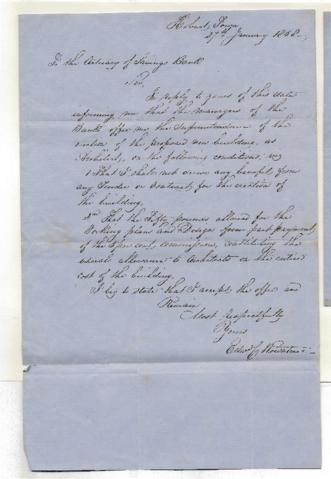 Hobart Town
27th January 1868
To the Actuary of Savings Bank
Sir,
In reply to yours of this date
informing me that the managers of the
Bank offer me the Superintendence of the
erection of the proposed new building, as
Architect, on the following conditions, viz
1 That I shall not derive any benefit from
any Tender or Contract for the erection of
the building.
2nd That the Fifty pounds allowed for the
Working plans and Design form part payment
of the five cent, commission, the
usual allowance to Architects on the entire
cost of the building.
I beg to state that I accept the offer and
Remain
Most respectfully
Yours
Edwd C Rowntree